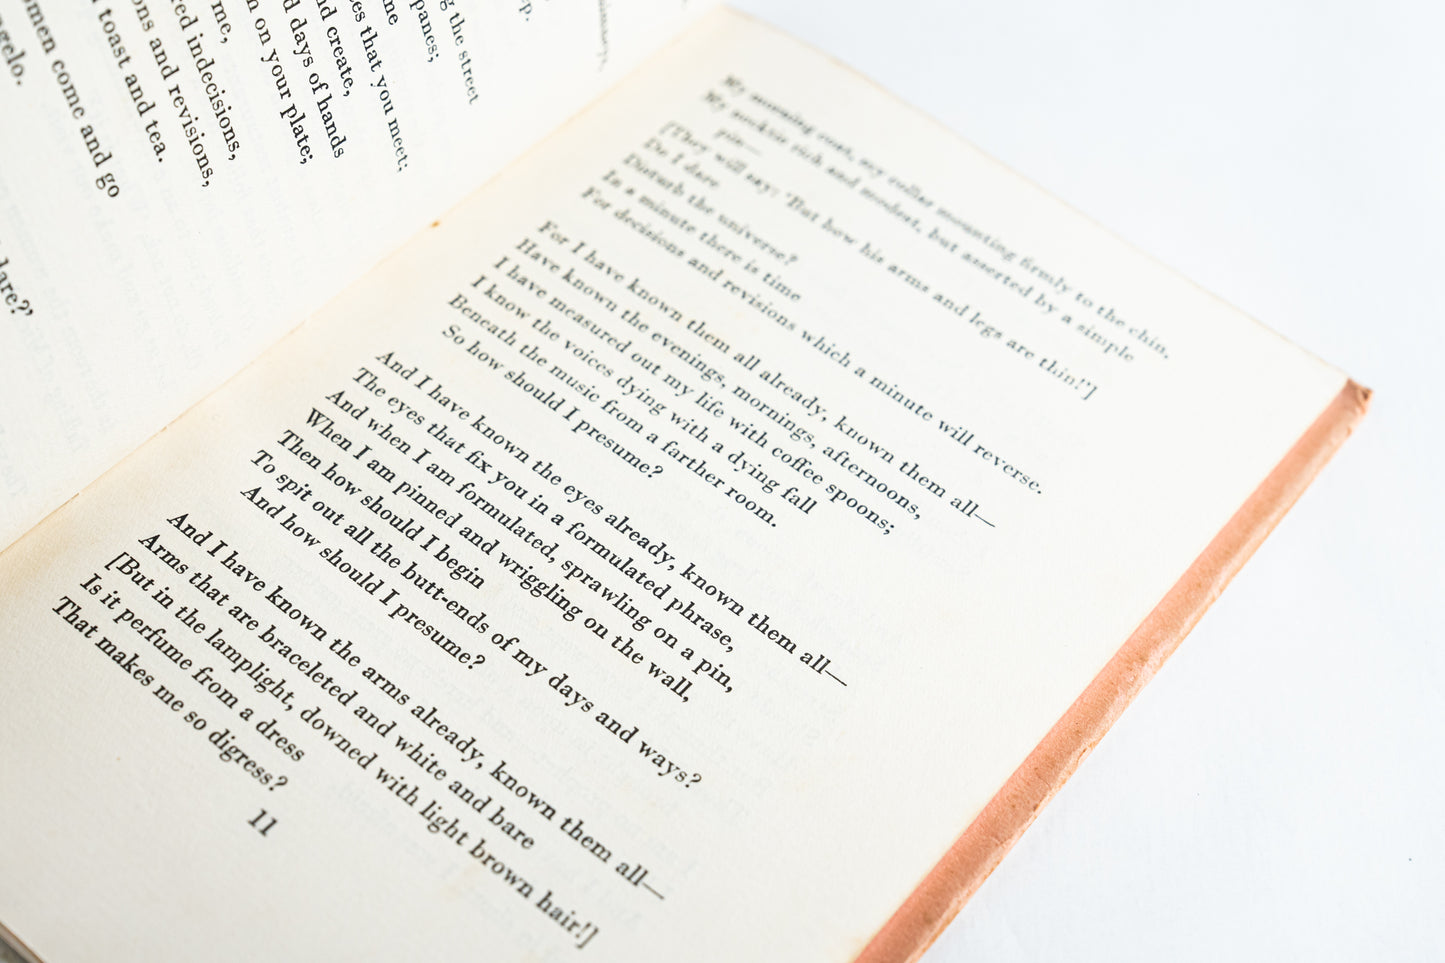 g the street
panes;
me
ces that you meet;
nd create,
d days of hands
n on your plate;
me,
red indecisions,
ons and revisions,
toast and tea.
omen come and go
gelo.
dare?'
My morning coat, my collar mounting firmly to the chin,
My necktie rich and modest, but asserted by a simple
pin—
[They will say: 'But how his arms and legs are thin!']
Do I dare
Disturb the universe?
In a minute there is time
For decisions and revisions which a minute will reverse.
For I have known them all already, known them all—
Have known the evenings, mornings, afternoons,
I have measured out my life with coffee spoons;
I know the voices dying with a dying fall
Beneath the music from a farther room.
So how should I presume?
And I have known the eyes already, known them all—
The eyes that fix you in a formulated phrase,
And when I am formulated, sprawling on a pin,
When I am pinned and wriggling on the wall,
Then how should I begin
To spit out all the butt-ends of my days and ways?
And how should I presume?
And I have known the arms already, known them all—
Arms that are braceleted and white and bare
[But in the lamplight, downed with light brown hair!]
Is it perfume from a dress
That makes me so digress?
11